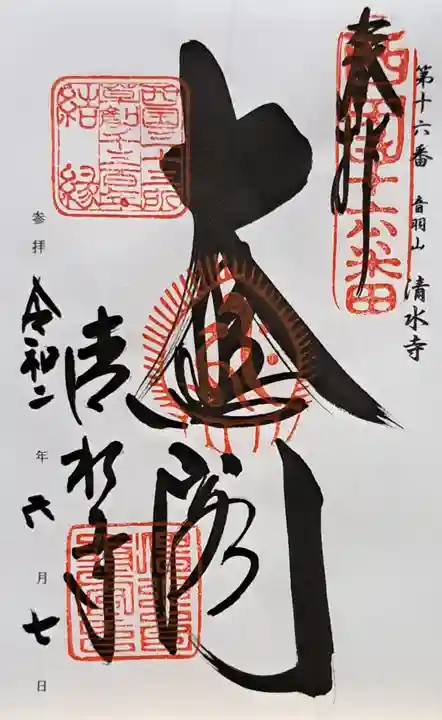 第十六番 音羽山 清水寺
奉拝
西国十六番
大悲閣
西国三十三所
草創千三百年
結縁
清水寺
参拝 令和二年 六月 七日